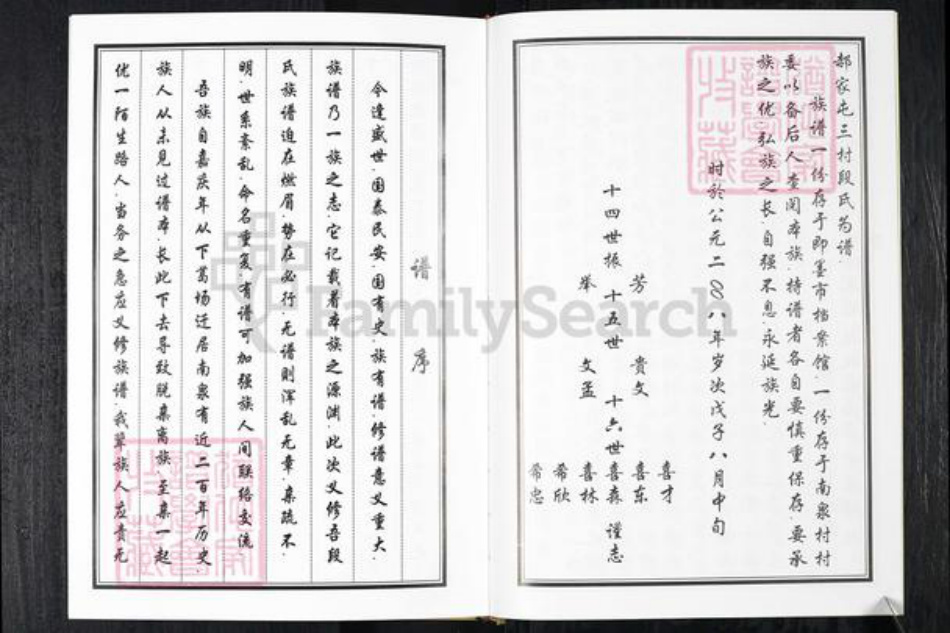 郝家屯三村段氏为谱
族谱一份存于即墨市档案馆.一份存于南泉村村
委以备后人查阅本族.持谱者各自要慎重保存.要承
族之优弘族之长.自强不息.永延族光.
时於公元二00八年岁次戊子八月中旬
十四世振 芳 举 十五世 贵文 文孟 十六世 喜才 喜东 喜森 喜林 希欣 希忠 谨志
谱序
今逢盛世.国泰民安.国有史.族有谱.修谱意义重大.
族谱乃一族之志.它记载着本族之源渊.此次义修吾段
氏族谱迫在燃眉.势在必行.无谱则浑乱无章.亲疏不
明.世系紊乱.命名重复.有谱可加强族人间联络交流
吾族自嘉庆年从下葛场迁居南泉有近二百年历史.
族人从未见过谱本.长此下去导致脱亲离族.至亲一起
优一陌生路人.当务之急应义修族谱.我辈族人应责无
FamilySearch